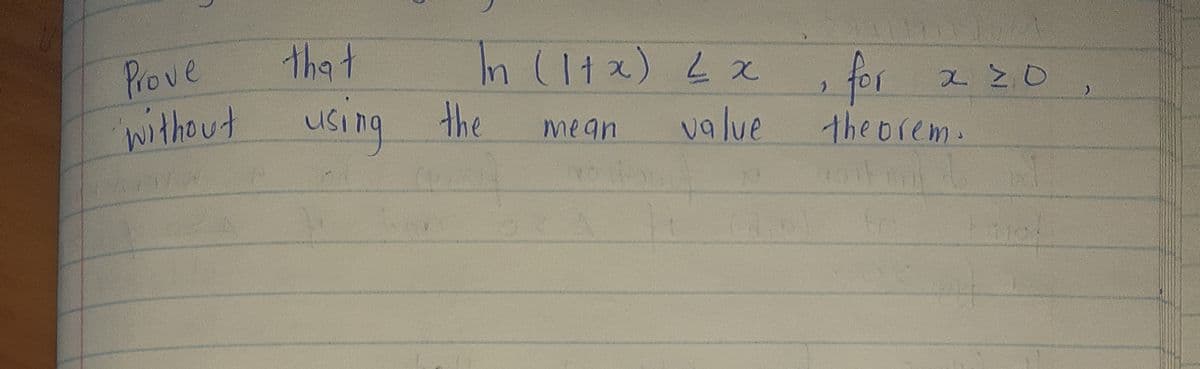 Prove that ln (1+x) ≤ x , for x ≥ 0 ,
without using the mean value theorem.